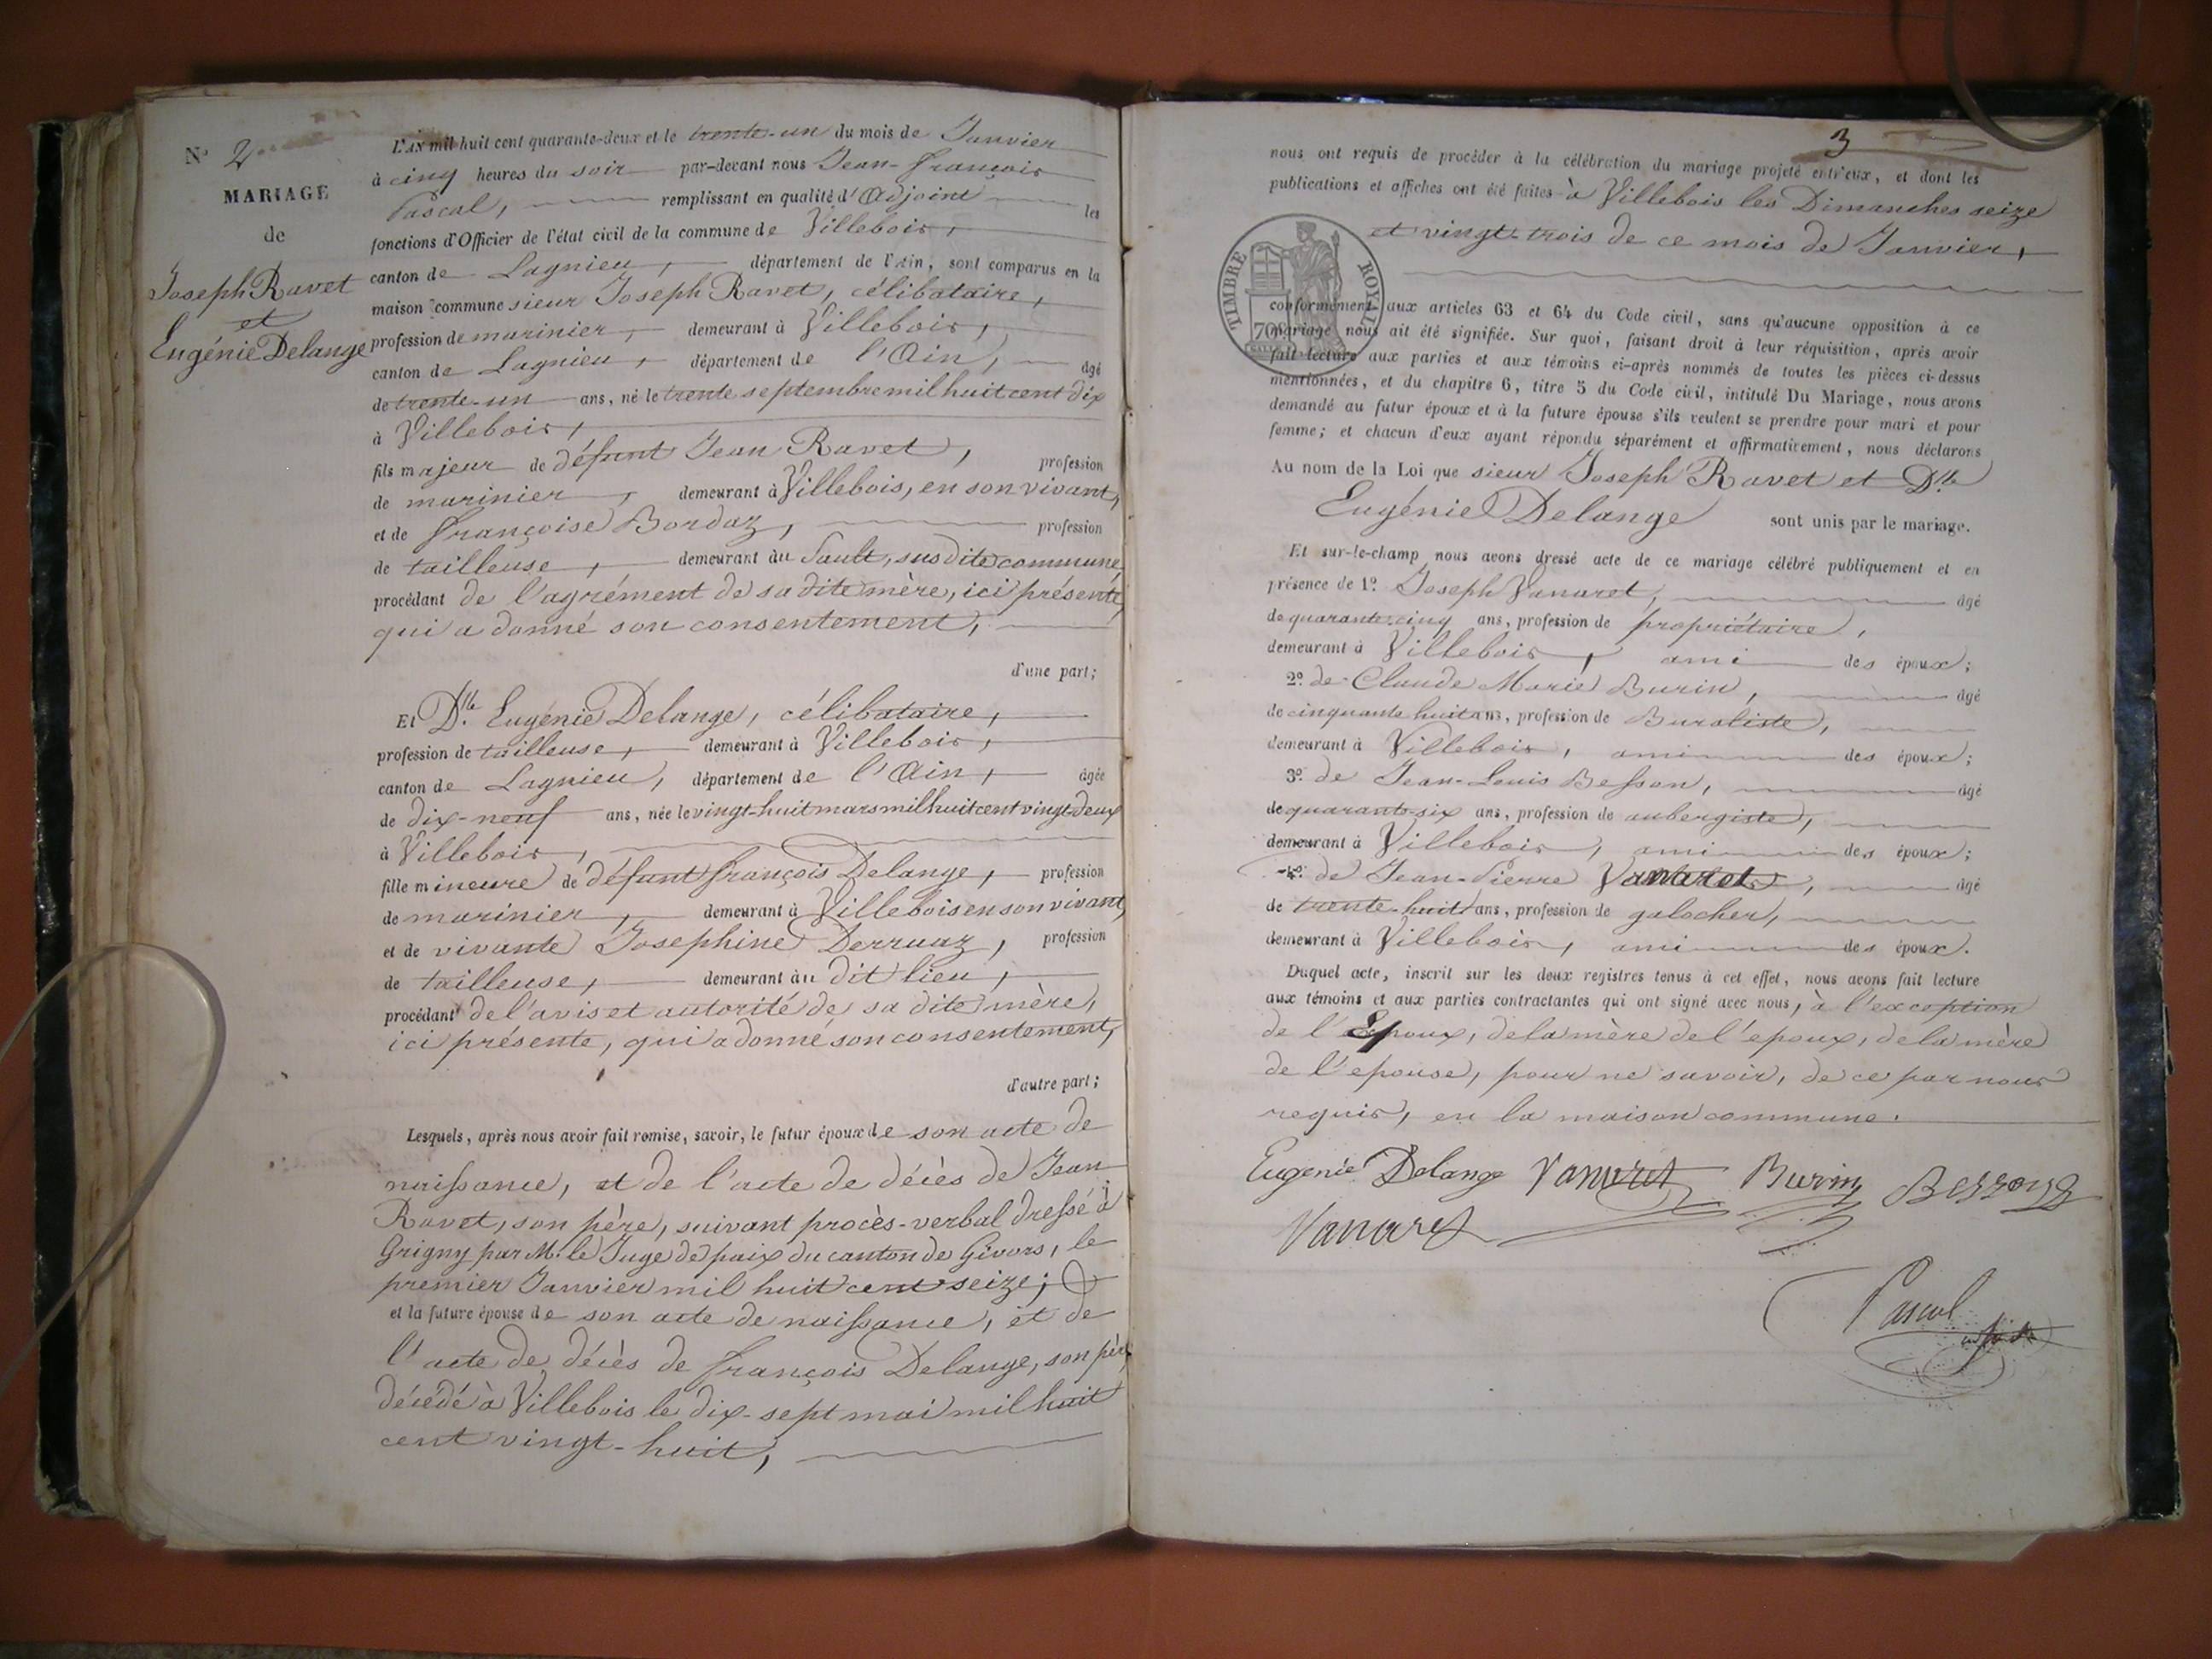 N.º 2
MARIAGE
de
Joseph Ravet
et
Eugénie Delange
L'AN mil huit cent quarante-deux et le trente-un du mois de Janvier
à cinq heures du soir par-devant nous Jean-François
Pascal, remplissant en qualité d'Adjoint les
fonctions d'Officier de l'état civil de la commune de Villebois,
canton de Lagnieu, département de l'Ain, sont comparus en la
maison commune sieur Joseph Ravet, célibataire,
profession de marinier, demeurant à Villebois,
canton de Lagnieu, département de l'Ain, âgé
de trente-un ans, né le trente septembre mil huit cent dix
à Villebois,
fils majeur de défunt Jean Ravet, profession
de marinier, demeurant à Villebois, en son vivant,
et de Françoise Bordaz, profession
de tailleuse, demeurant au Sault, sus dite commune
procédant de l'agrément de sa dite mère, ici présente,
qui a donné son consentement,
d'une part;
Et Dlle Eugénie Delange, célibataire,
profession de tailleuse, demeurant à Villebois,
canton de Lagnieu, département de l'Ain, âgée
de dix-neuf ans, née le vingt-huit mars mil huit cent vingt-deux
à Villebois,
fille mineure de défunt François Delange, profession
de marinier, demeurant à Villebois en son vivant,
et de vivante Josephine Derruaz, profession
de tailleuse, demeurant au dit lieu,
procédant de l'avis et autorité de sa dite mère,
ici présente, qui a donné son consentement,
d'autre part;
Lesquels, après nous avoir fait remise, savoir, le futur époux de son acte de
naissance, et de l'acte de décès de Jean
Ravet, son père, suivant procès-verbal dressé à
Grigny par M. le Juge de paix du canton de Givors, le
premier Janvier mil huit cent seize;
et la future épouse de son acte de naissance, et de
l'acte de décès de François Delange, son père,
décédé à Villebois le dix-sept mai mil huit
cent vingt-huit,
3
nous ont requis de procéder à la célébration du mariage projeté entr'eux, et dont les
publications et affiches ont été faites à Villebois les Dimanches seize
et vingt-trois de ce mois de Janvier,
TIMBRE ROYAL
70
conformément aux articles 63 et 64 du Code civil, sans qu'aucune opposition à ce
mariage nous ait été signifiée. Sur quoi, faisant droit à leur réquisition, après avoir
fait lecture aux parties et aux témoins ci-après nommés de toutes les pièces ci-dessus
mentionnées, et du chapitre 6, titre 5 du Code civil, intitulé Du Mariage, nous avons
demandé au futur époux et à la future épouse s'ils veulent se prendre pour mari et pour
femme; et chacun d'eux ayant répondu séparément et affirmativement, nous déclarons
Au nom de la Loi que sieur Joseph Ravet et Dlle
Eugénie Delange sont unis par le mariage.
Et sur-le-champ nous avons dressé acte de ce mariage célébré publiquement et en
présence de 1º. Joseph Vanaret, âgé
de quarante-cinq ans, profession de propriétaire,
demeurant à Villebois, ami des époux;
2º. de Claude Marie Burin, âgé
de cinquante huit ans, profession de Buraliste,
demeurant à Villebois, ami des époux;
3º. de Jean-Louis Besson, âgé
de quarante-six ans, profession de aubergiste,
demeurant à Villebois, ami des époux;
4º. de Jean-Pierre Vanaret, âgé
de trente-huit ans, profession de galocher,
demeurant à Villebois, ami des époux.
Duquel acte, inscrit sur les deux registres tenus à cet effet, nous avons fait lecture
aux témoins et aux parties contractantes qui ont signé avec nous, à l'exception
de l'Epoux, de la mère de l'epoux, de la mère
de l'epouse, pour ne savoir, de ce par nous
requis, en la maison commune.
Eugénie Delange Vanaret Burin Besson
Vanaret
Pascal